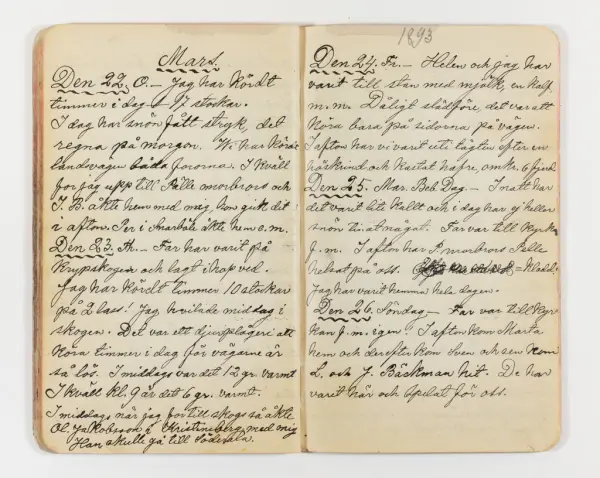 Mars.
Den 22. O. — Jag har kördt
timmer i dag — 17 stockar.
I dag har snön fått stryk, det
regna på morgon. Vi har körde
landsvägen båda fororna. I kväll
for jag upp till Pälle morbrors och
I. B. åkte hem med mig, hon gick dit
i afton. Per i Anarböle åkte hem e.m.
Den 23. Th. — Far har varit på
Krypskogen och lagt ihop ved.
Jag har kördt timmer 10 stockar
på 2 lass! Jag hvilade middag i
skogen. Det var ett djurplågeri att
köra timmer i dag för vägarne är
så lös. I middags var det 12 gr. varmt
I kväll kl. 9 är det 6 gr. varmt.
I middags när jag for till skogs så åkte
Ol. Jakobsson i Kristineberg med mig
Han skulle gå till Södersala.
1893
Den 24. Fr. — Helen och jag har
varit till stan med mjölk, en kalf
m.m. Dåligt slädföre, det var att
köra bara på sidorna på vägen.
I afton har vi varit uti tägten efter en
höskrind och kastat hafre, omkr. 6 fjerd.
Den 25. Mar. Beb. Dag. — I natt har
det varit lite kallt och i dag har ej heller
snön tinat något. Far var till Kyrkan
f.m. I afton har P. morbrors Pelle
helsat på oss.
Jag har varit hemma hela dagen.
Den 26. Söndag — Far var till Kyr
kan f.m. igen! I afton kom Marta
hem och derefter kom Sven och sen kom
L. och J. Bäckman hit. De har
varit här och spelat för oss.